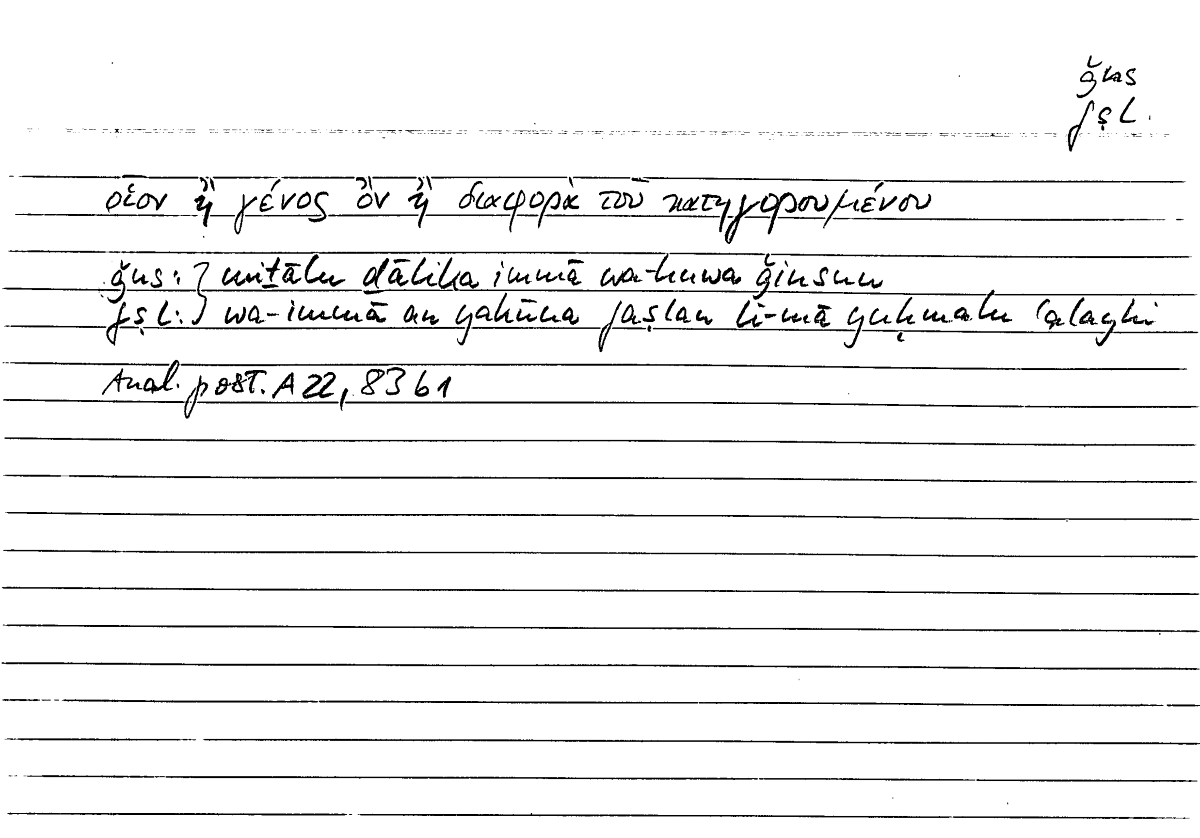 ǧns
fṣl.
οἷον ἢ γένος ὂν ἢ διαφορὰ τοῦ κατηγορουμένου
ǧns: } miṯālu ḏālika immā wa-huwa ǧinsun
fṣl: } wa-immā an yakūna faṣlan li-mā yuḥmalu ʿalayhi
Anal. post. A 22, 83 b 1